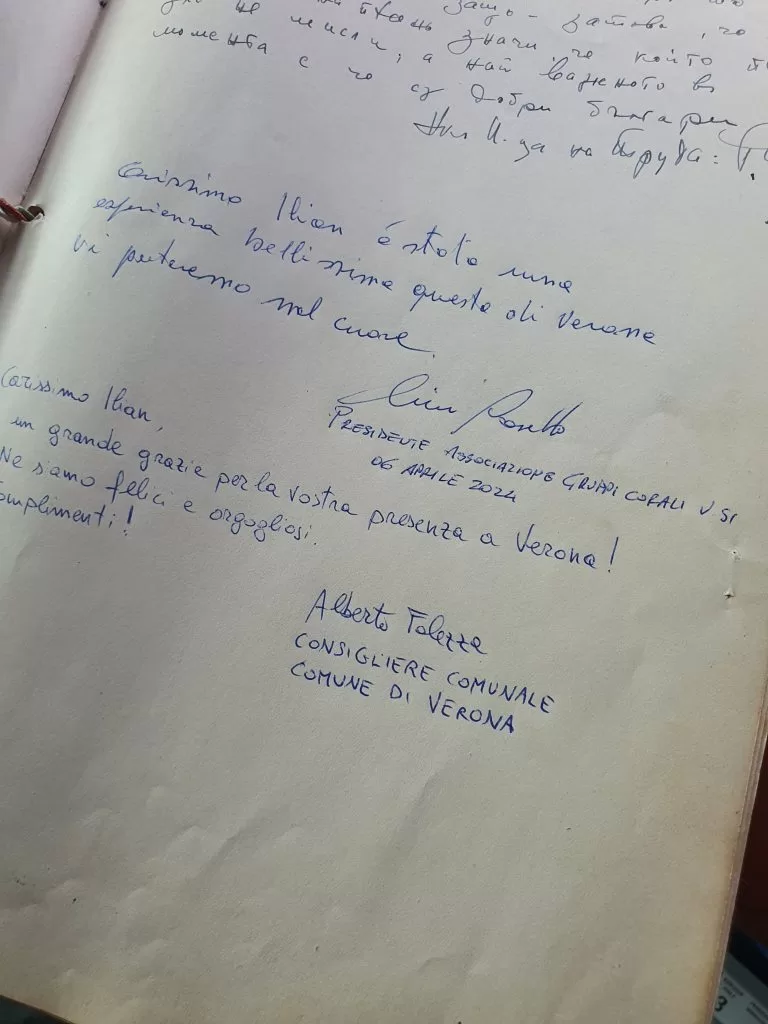 защо - затова, че
не мисли, а най важното в
момента е че са добри българи
Carissimo Ilian é stata una
esperienza bellissima questa di Verona
vi porteremo nel cuore.
PRESIDENTE ASSOCIAZIONE GRUPPI CORALI V SI
06 APRILE 2024
Carissimo Ilian,
un grande grazie per la vostra presenza a Verona!
Ne siamo felici e orgogliosi.
omplimenti!
Alberto Falezza
CONSIGLIERE COMUNALE
COMUNE DI VERONA